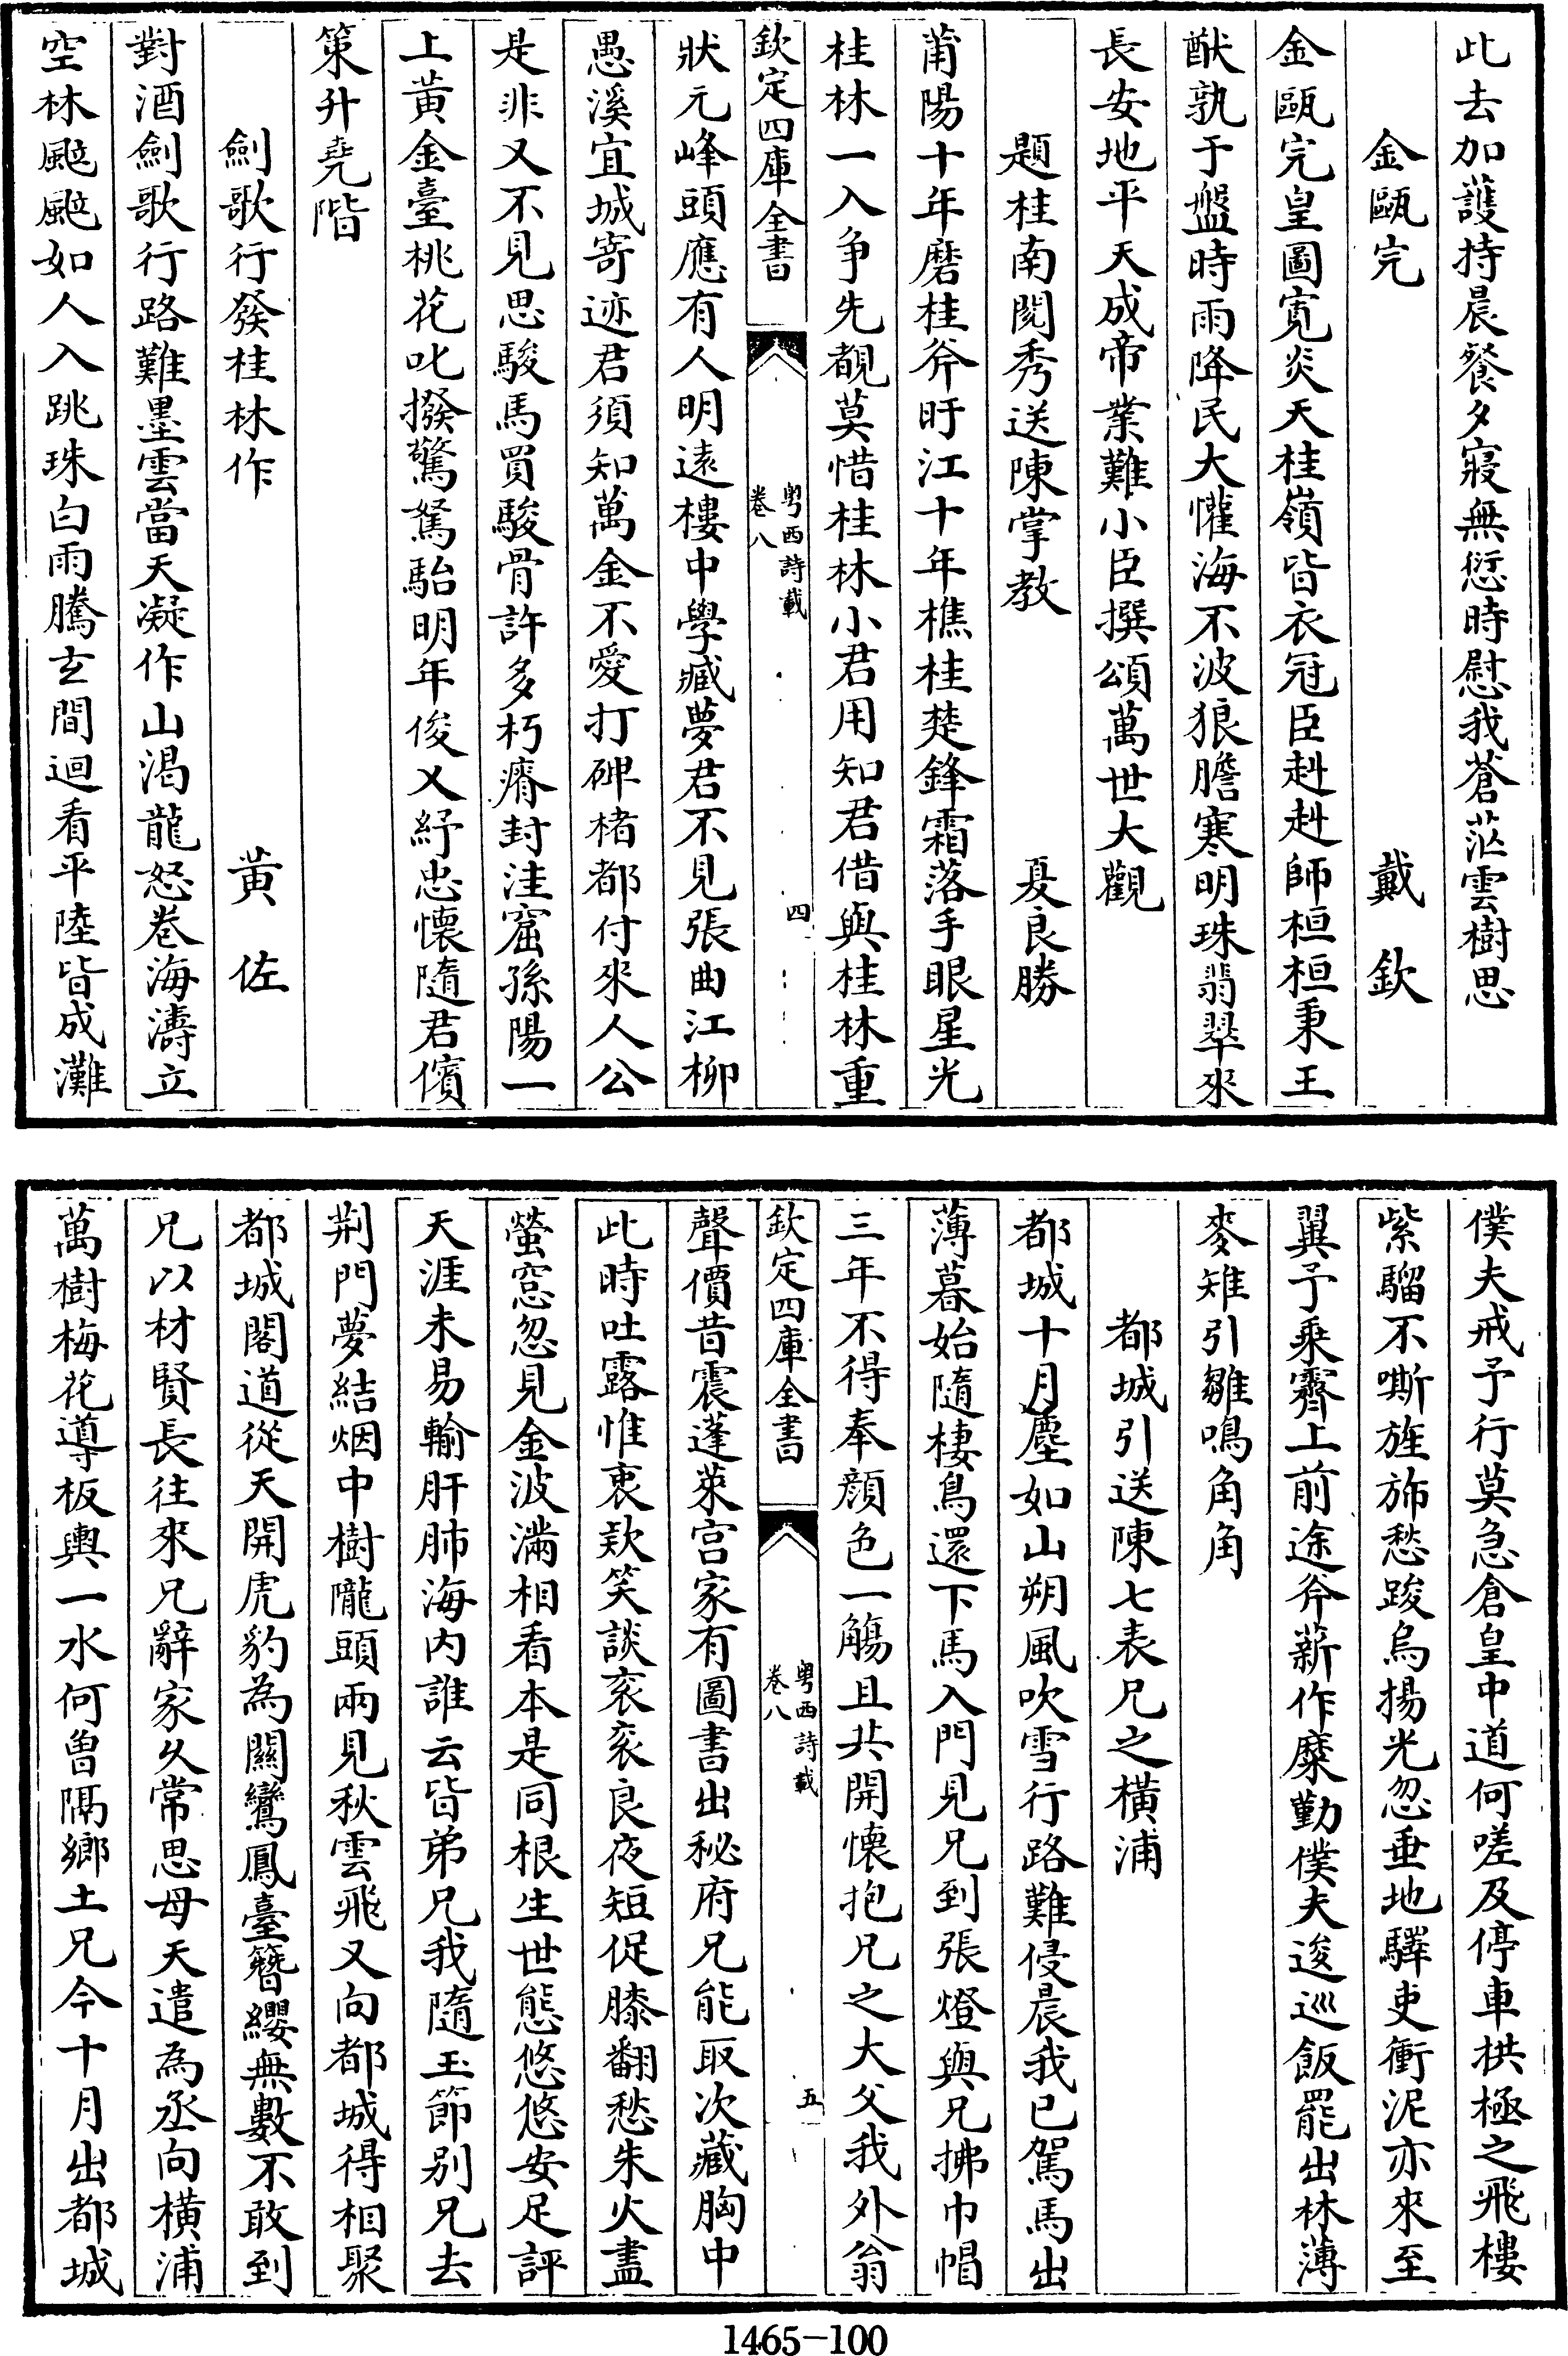 此去加護持晨餐夕寢無愆時慰我蒼茫雲樹思
金甌完 戴欽
金甌完皇圖寬炎天桂嶺皆衣冠臣赳赳師桓桓秉王
猷孰于盤時雨降民大懽海不波狼膽寒明珠翡翠來
長安地平天成帝業難小臣撰頌萬世大觀
題桂南閱秀送陳掌教 夏良勝
莆陽十年磨桂斧旴江十年樵桂楚鋒霜落手眼星光
桂林一入争先覩莫惜桂林小君用知君借與桂林重
欽定四庫全書 粤西詩載 卷八 四
狀元峰頭應有人明遠樓中學臧夢君不見張曲江柳
愚溪宜城寄迹君須知萬金不愛打碑楮都付來人公
是非又不見思駿馬買駿骨許多朽瘠封洼窟孫陽一
上黄金臺桃花叱撥驚駑駘明年俊乂紓忠懷隨君儐
策升堯階
劍歌行發桂林作 黄佐
對酒劍歌行路難墨雲當天凝作山渴龍怒卷海濤立
空林颭颭如人入跳珠白雨騰玄間迴看平陸皆成灘
僕夫戒予行莫急倉皇中道何嗟及停車栱極之飛樓
紫騮不嘶旌斾愁踆烏揚光忽垂地驛吏衝泥亦來至
翼予乘霽上前途斧薪作糜勤僕夫逡巡飯罷出林薄
麥雉引雛鳴角角
都城引送陳七表兄之横浦
都城十月塵如山朔風吹雪行路難侵晨我已駕馬出
薄暮始隨棲鳥還下馬入門見兄到張燈與兄拂巾帽
三年不得奉顔色一觴且共開懷抱兄之大父我外翁
欽定四庫全書 粤西詩載 卷八 五
聲價昔震蓬萊宫家有圖書出秘府兄能取次藏胸中
此時吐露惟衷欵笑談衮衮良夜短促膝翻愁朱火盡
螢窓忽見金波滿相看本是同根生世態悠悠安足評
天涯未易輸肝肺海内誰云皆弟兄我隨玉節别兄去
荆門夢結烟中樹隴頭兩見秋雲飛又向都城得相聚
都城閣道從天開虎豹為關鸞鳳臺簪纓無數不敢到
兄以材賢長往來兄辭家久常思母天遣為丞向横浦
萬樹梅花導板輿一水何曽隔鄉土兄今十月出都城
1465-100